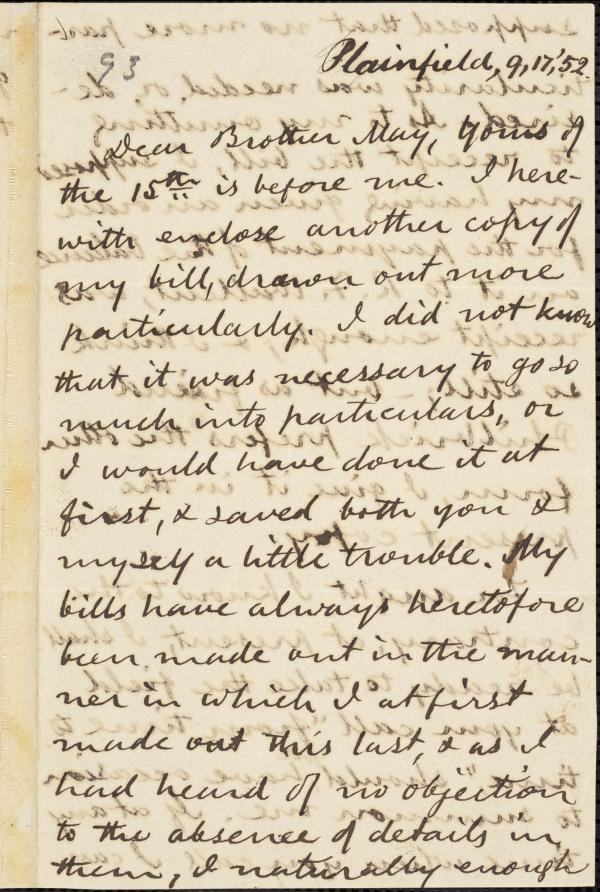 93
Plainfield, 9, 17, '52.
Dear Brother May, Yours of
the 15th is before me. I here-
with enclose another copy of
my bill, drawn out more
particularly. I did not know
that it was necessary to go so
much into particulars, or
I would have done it at
first, & saved both you &
myself a little trouble. My
bills have always heretofore
been made out in the man-
ner in which I at first
made out this last, & as I
had heard of no objection
to the absence of details in
them, I naturally enough